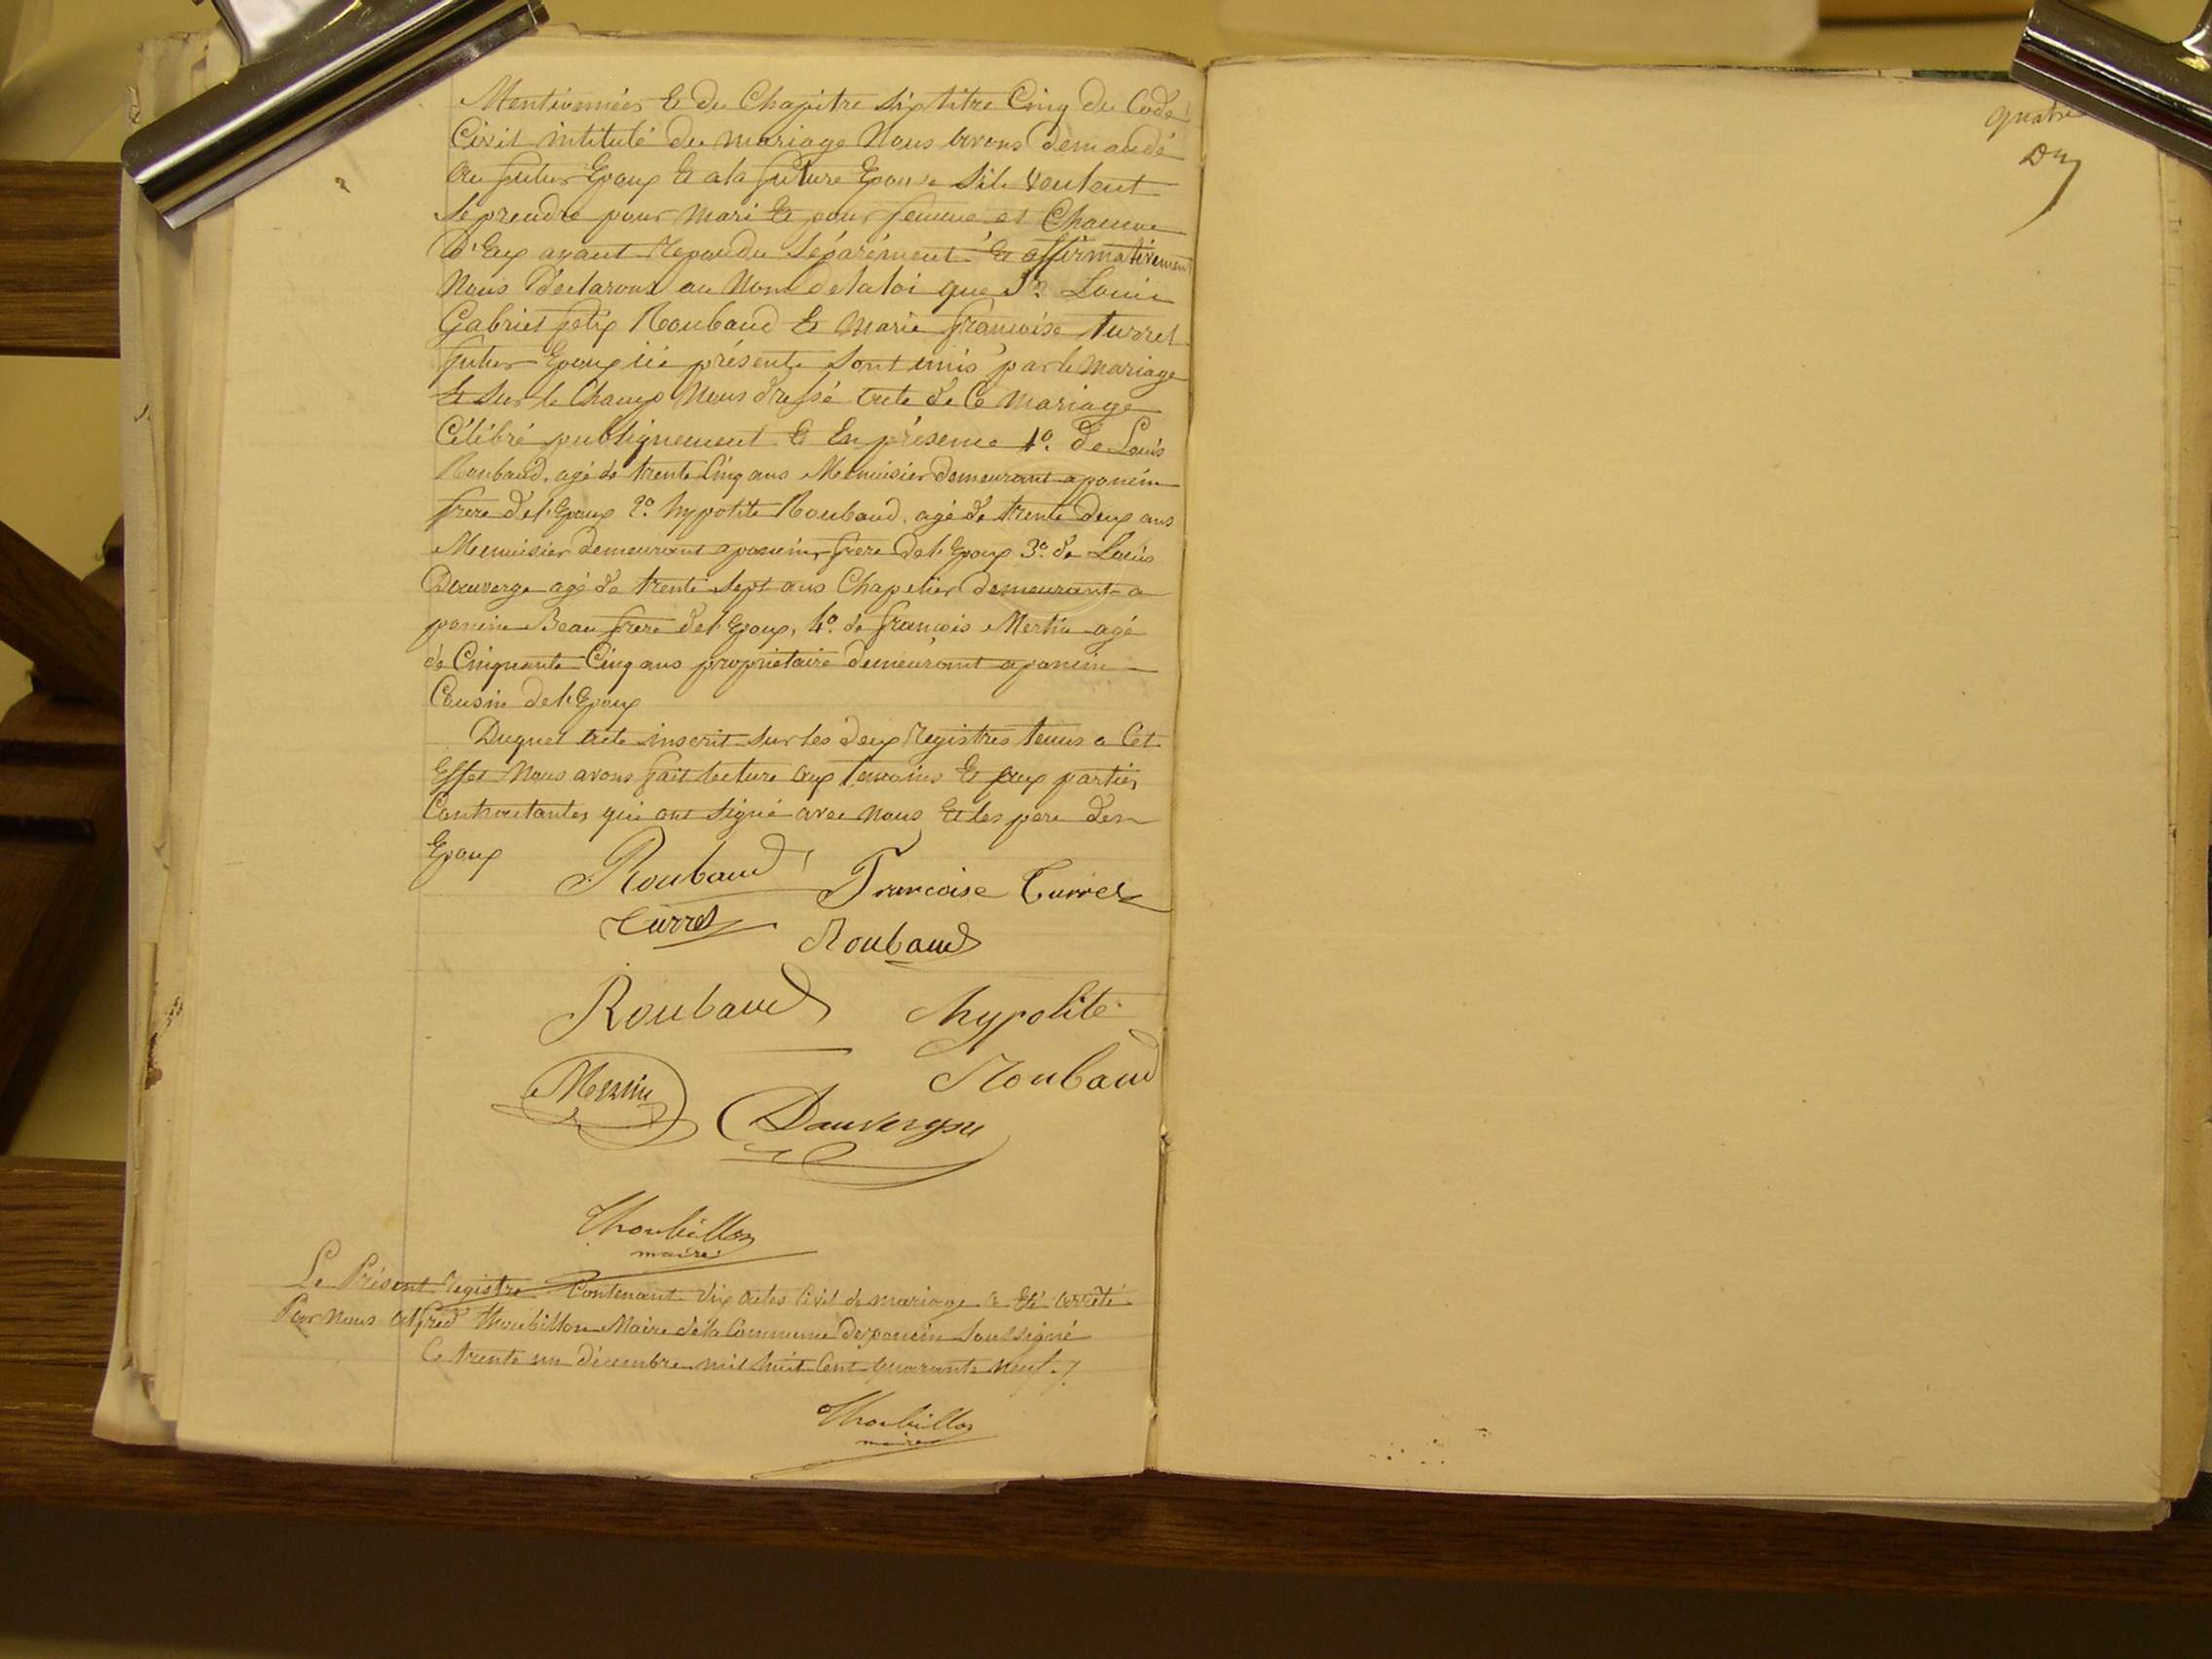 Mentionnées et du Chapitre six titre Cinq du Code
Civil intitulé du mariage Nous avons demandé
au futur Epoux et a la future Epouse s'ils veulent
se prendre pour mari et pour femme et Chacun
D'Eux ayant repondu séparément et affirmativement
Nous déclarons au Nom de la loi que Sr. Louis
Gabriel felix Roubaud et Marie françoise turrel
futur Epoux ici présents sont unis par le mariage
et sur le Champ Nous dressé acte de Ce mariage
Célébré publiquement et En présence 1o. de Louis
Roubaud, agé de trente Cinq ans Menuisier demeurant a poncin
frere de l'Epoux 2o. hypolite Roubaud, agé de trente deux ans
Menuisier demeurant a poncin frere de l'Epoux 3o. de Louis
Dauverge agé de trente sept ans Chapelier demeurant a
poncin Beau frere de l'Epoux, 4o. de françois Mertin agé
de Cinquante Cinq ans propriétaire demeurant a poncin
Cousin de l'Epoux
Duquel acte inscrit sur les deux Registres tenus a Cet
Effet Nous avons fait lecture aux temoins et aux parties
Contractantes qui ont signé avec nous et les pere des
Epoux
Roubaud Francoise Turrel
Turrel Roubaud
Roubaud hypolite
Roubaud
Dauvergne
Thoubillon
maire
Le Présent registre Contenant dix actes Civil de mariage a Eté arrêté
Par nous alfred thoubillon Maire de la Commune de poncin soussigné
Ce trente un décembre mil huit Cent quarante neuf ./.
Thoubillon
maire
quatre